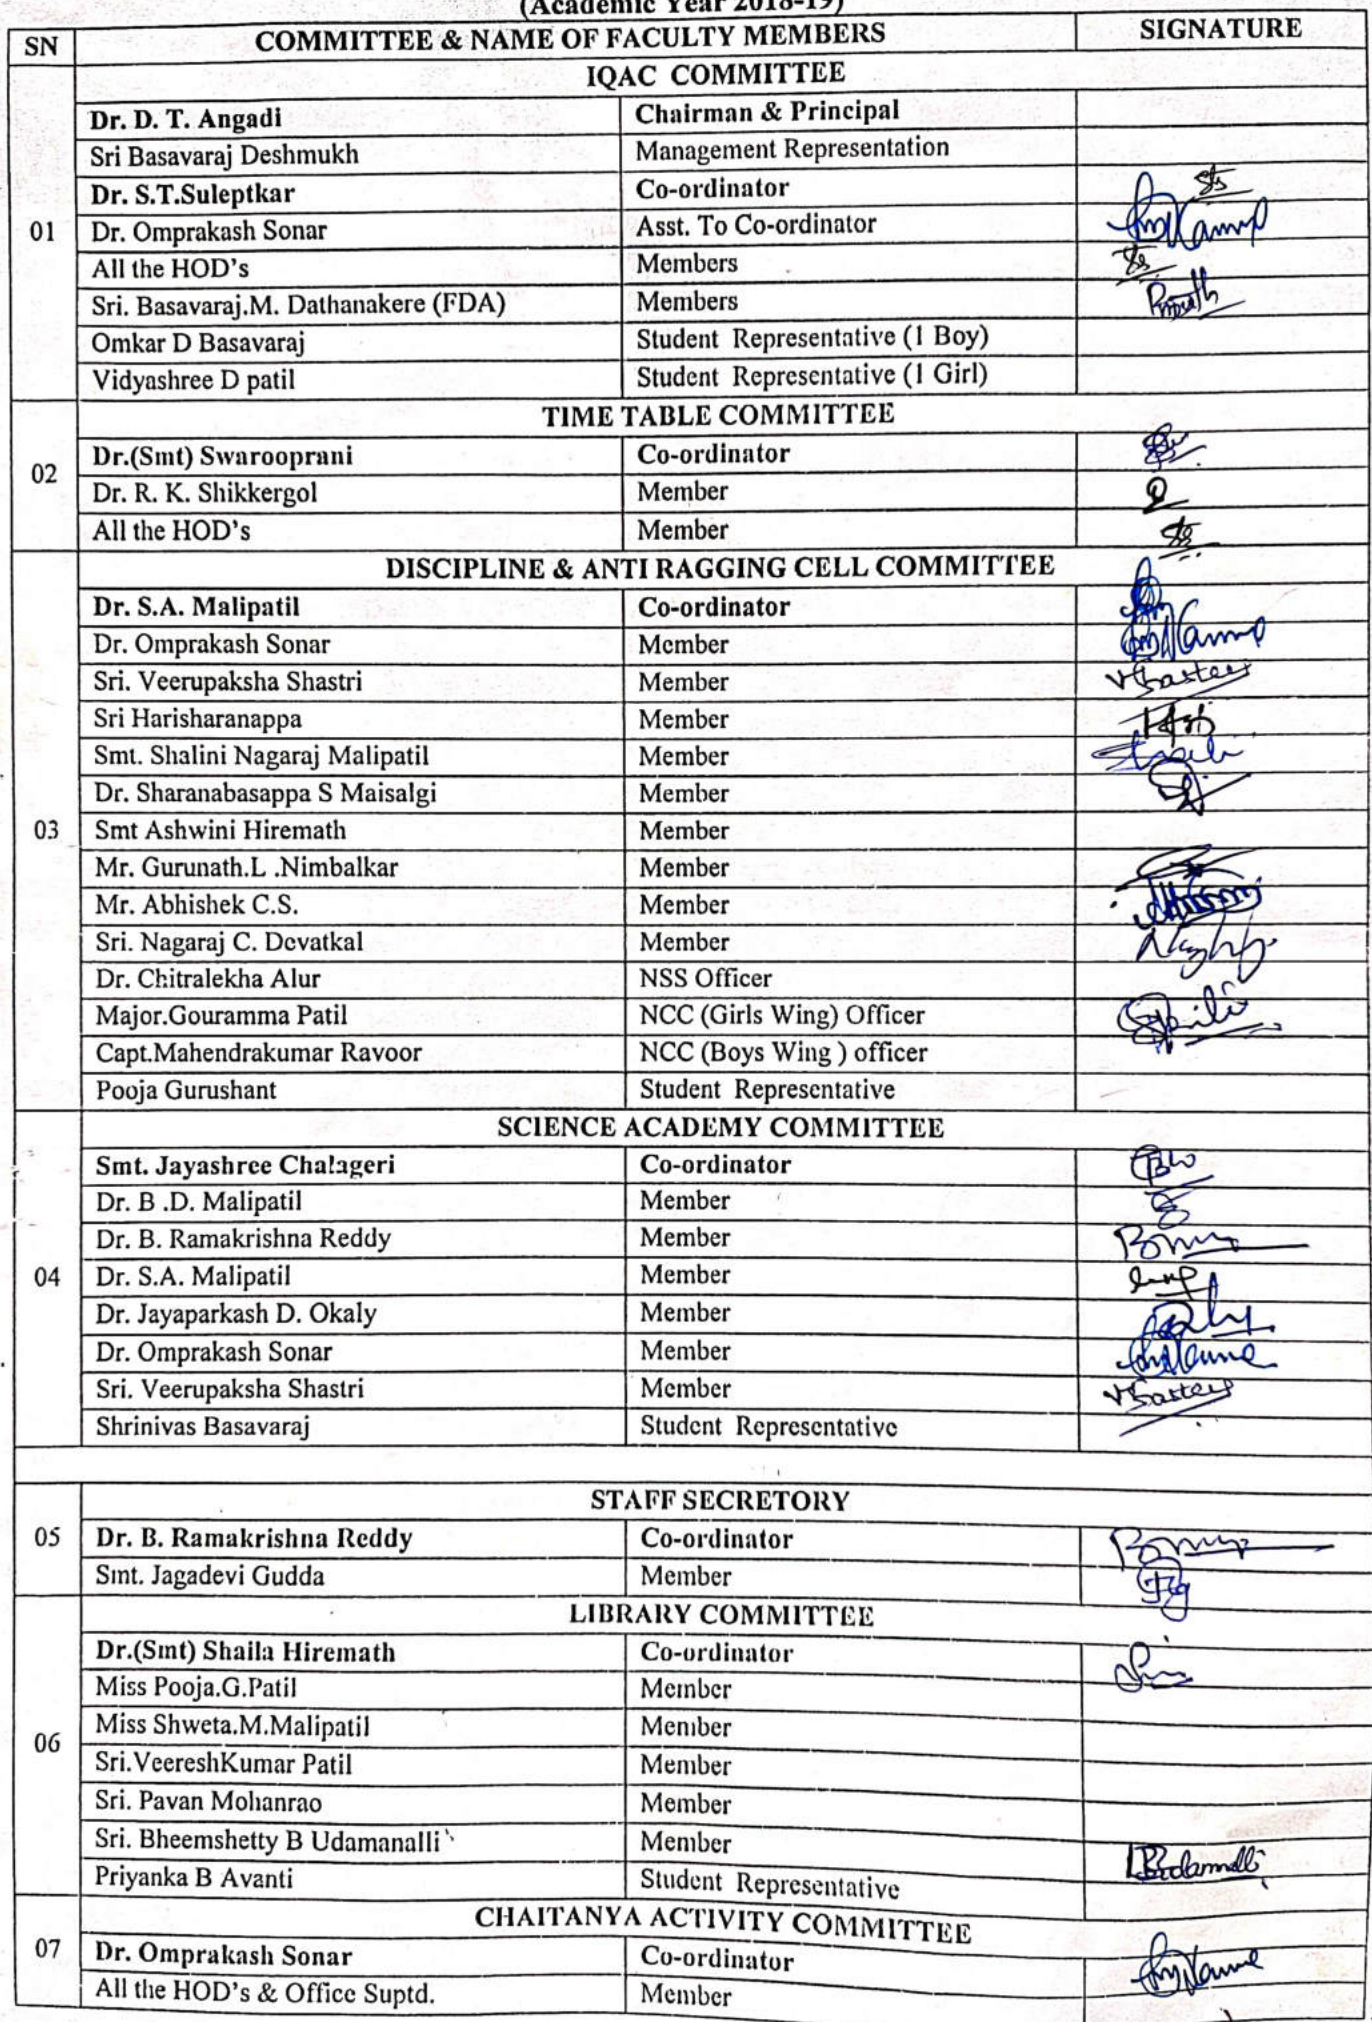 (Academic Year 2018-19)
SN COMMITTEE & NAME OF FACULTY MEMBERS SIGNATURE
IQAC COMMITTEE
01
Dr. D. T. Angadi Chairman & Principal
Sri Basavaraj Deshmukh Management Representation
Dr. S.T.Suleptkar Co-ordinator
Dr. Omprakash Sonar Asst. To Co-ordinator
All the HOD's Members
Sri. Basavaraj.M. Dathanakere (FDA) Members
Omkar D Basavaraj Student Representative (1 Boy)
Vidyashree D patil Student Representative (1 Girl)
TIME TABLE COMMITTEE
02
Dr.(Smt) Swarooprani Co-ordinator
Dr. R. K. Shikkergol Member
All the HOD's Member
DISCIPLINE & ANTI RAGGING CELL COMMITTEE
03
Dr. S.A. Malipatil Co-ordinator
Dr. Omprakash Sonar Member
Sri. Veerupaksha Shastri Member
Sri Harisharanappa Member
Smt. Shalini Nagaraj Malipatil Member
Dr. Sharanabasappa S Maisalgi Member
Smt Ashwini Hiremath Member
Mr. Gurunath.L .Nimbalkar Member
Mr. Abhishek C.S. Member
Sri. Nagaraj C. Devatkal Member
Dr. Chitralekha Alur NSS Officer
Major.Gouramma Patil NCC (Girls Wing) Officer
Capt.Mahendrakumar Ravoor NCC (Boys Wing ) officer
Pooja Gurushant Student Representative
SCIENCE ACADEMY COMMITTEE
04
Smt. Jayashree Chalageri Co-ordinator
Dr. B .D. Malipatil Member
Dr. B. Ramakrishna Reddy Member
Dr. S.A. Malipatil Member
Dr. Jayaparkash D. Okaly Member
Dr. Omprakash Sonar Member
Sri. Veerupaksha Shastri Member
Shrinivas Basavaraj Student Representative
STAFF SECRETORY
05
Dr. B. Ramakrishna Reddy Co-ordinator
Smt. Jagadevi Gudda Member
LIBRARY COMMITTEE
06
Dr.(Smt) Shaila Hiremath Co-ordinator
Miss Pooja.G.Patil Member
Miss Shweta.M.Malipatil Member
Sri.VeereshKumar Patil Member
Sri. Pavan Mohanrao Member
Sri. Bheemshetty B Udamanalli Member
Priyanka B Avanti Student Representative
CHAITANYA ACTIVITY COMMITTEE
07
Dr. Omprakash Sonar Co-ordinator
All the HOD's & Office Suptd. Member